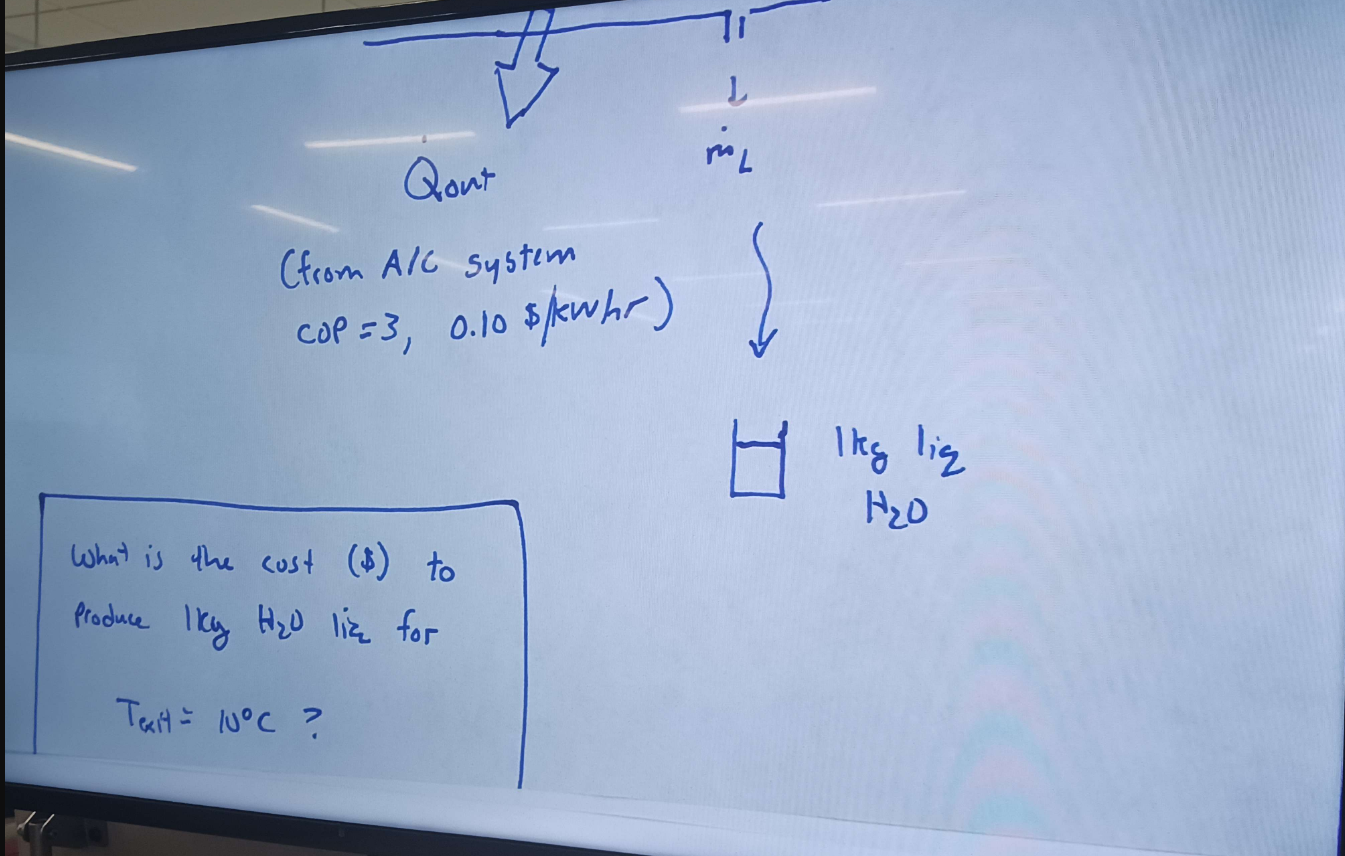 Qout
ṁL
(from A/C system
COP = 3, 0.10 $/kwhr)
1kg liq
H2O
What is the cost ($) to
Produce 1kg H2O liq for
Texit = 10°C ?